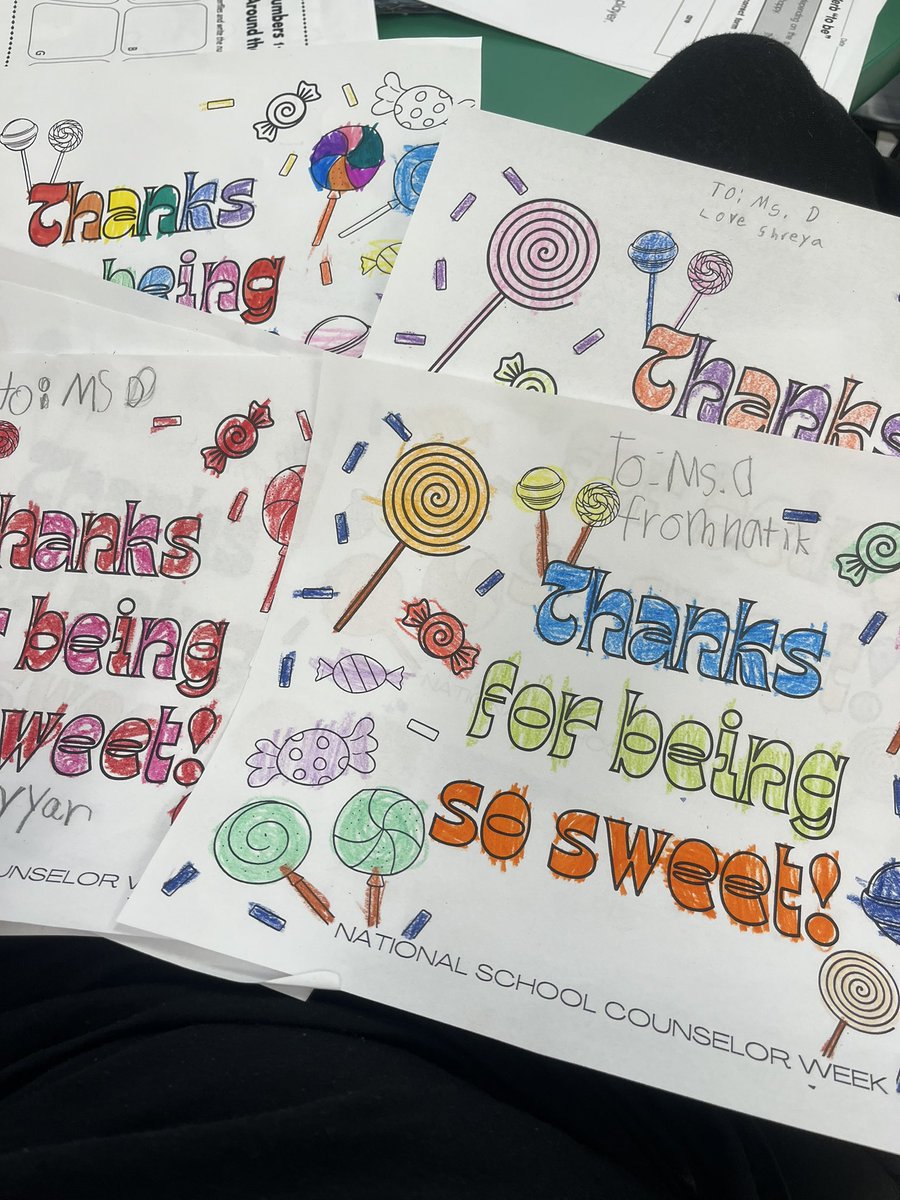 umbers 1-
Around th
G
B
player
are
erb "to be"
Thanks
being
TO: Ms. D
Love Shreya
Thanks
to: MS D
hanks
r being
weet!
yyan
UNSELOR W
To: Ms. d
from natik
Thanks
for being
so sweet!
NATIONAL SCHOOL COUNSELOR WEEK